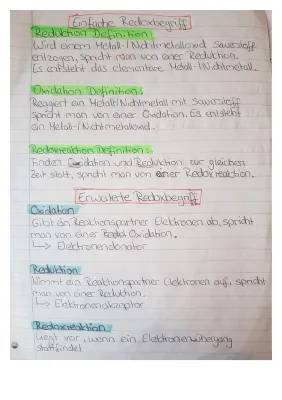 Einfache Redoxbegriff
Reduktion Definition:
Wird einem Metall-/Nichtmetalloxid Sauerstoff
entzogen, spricht man von einer Reduktion.
Es entsteht das elementare Metall-/Nichtmetall.
Oxidation Definition:
Reagiert ein Metall/Nichtmetall mit Sauerstoff
spricht man von einer Oxidation. Es entsteht
ein Metall-/Nichtmetalloxid.
Redoxreaktion Definition:
Finden Oxidation und Reduktion zur gleichen
Zeit statt, spricht man von einer Redoxreaktion.
Erweiterte Redoxbegriff
Oxidation
Gibt ein Reaktionspartner Elektronen ab, spricht
man von einer Oxidation.
↳ Elektronendonator
Reduktion
Nimmt ein Reaktionspartner Elektronen auf, spricht
man von einer Reduktion.
↳ Elektronenakzeptor
Redoxreaktion
Liegt vor, wenn ein Elektronenübergang
stattfindet